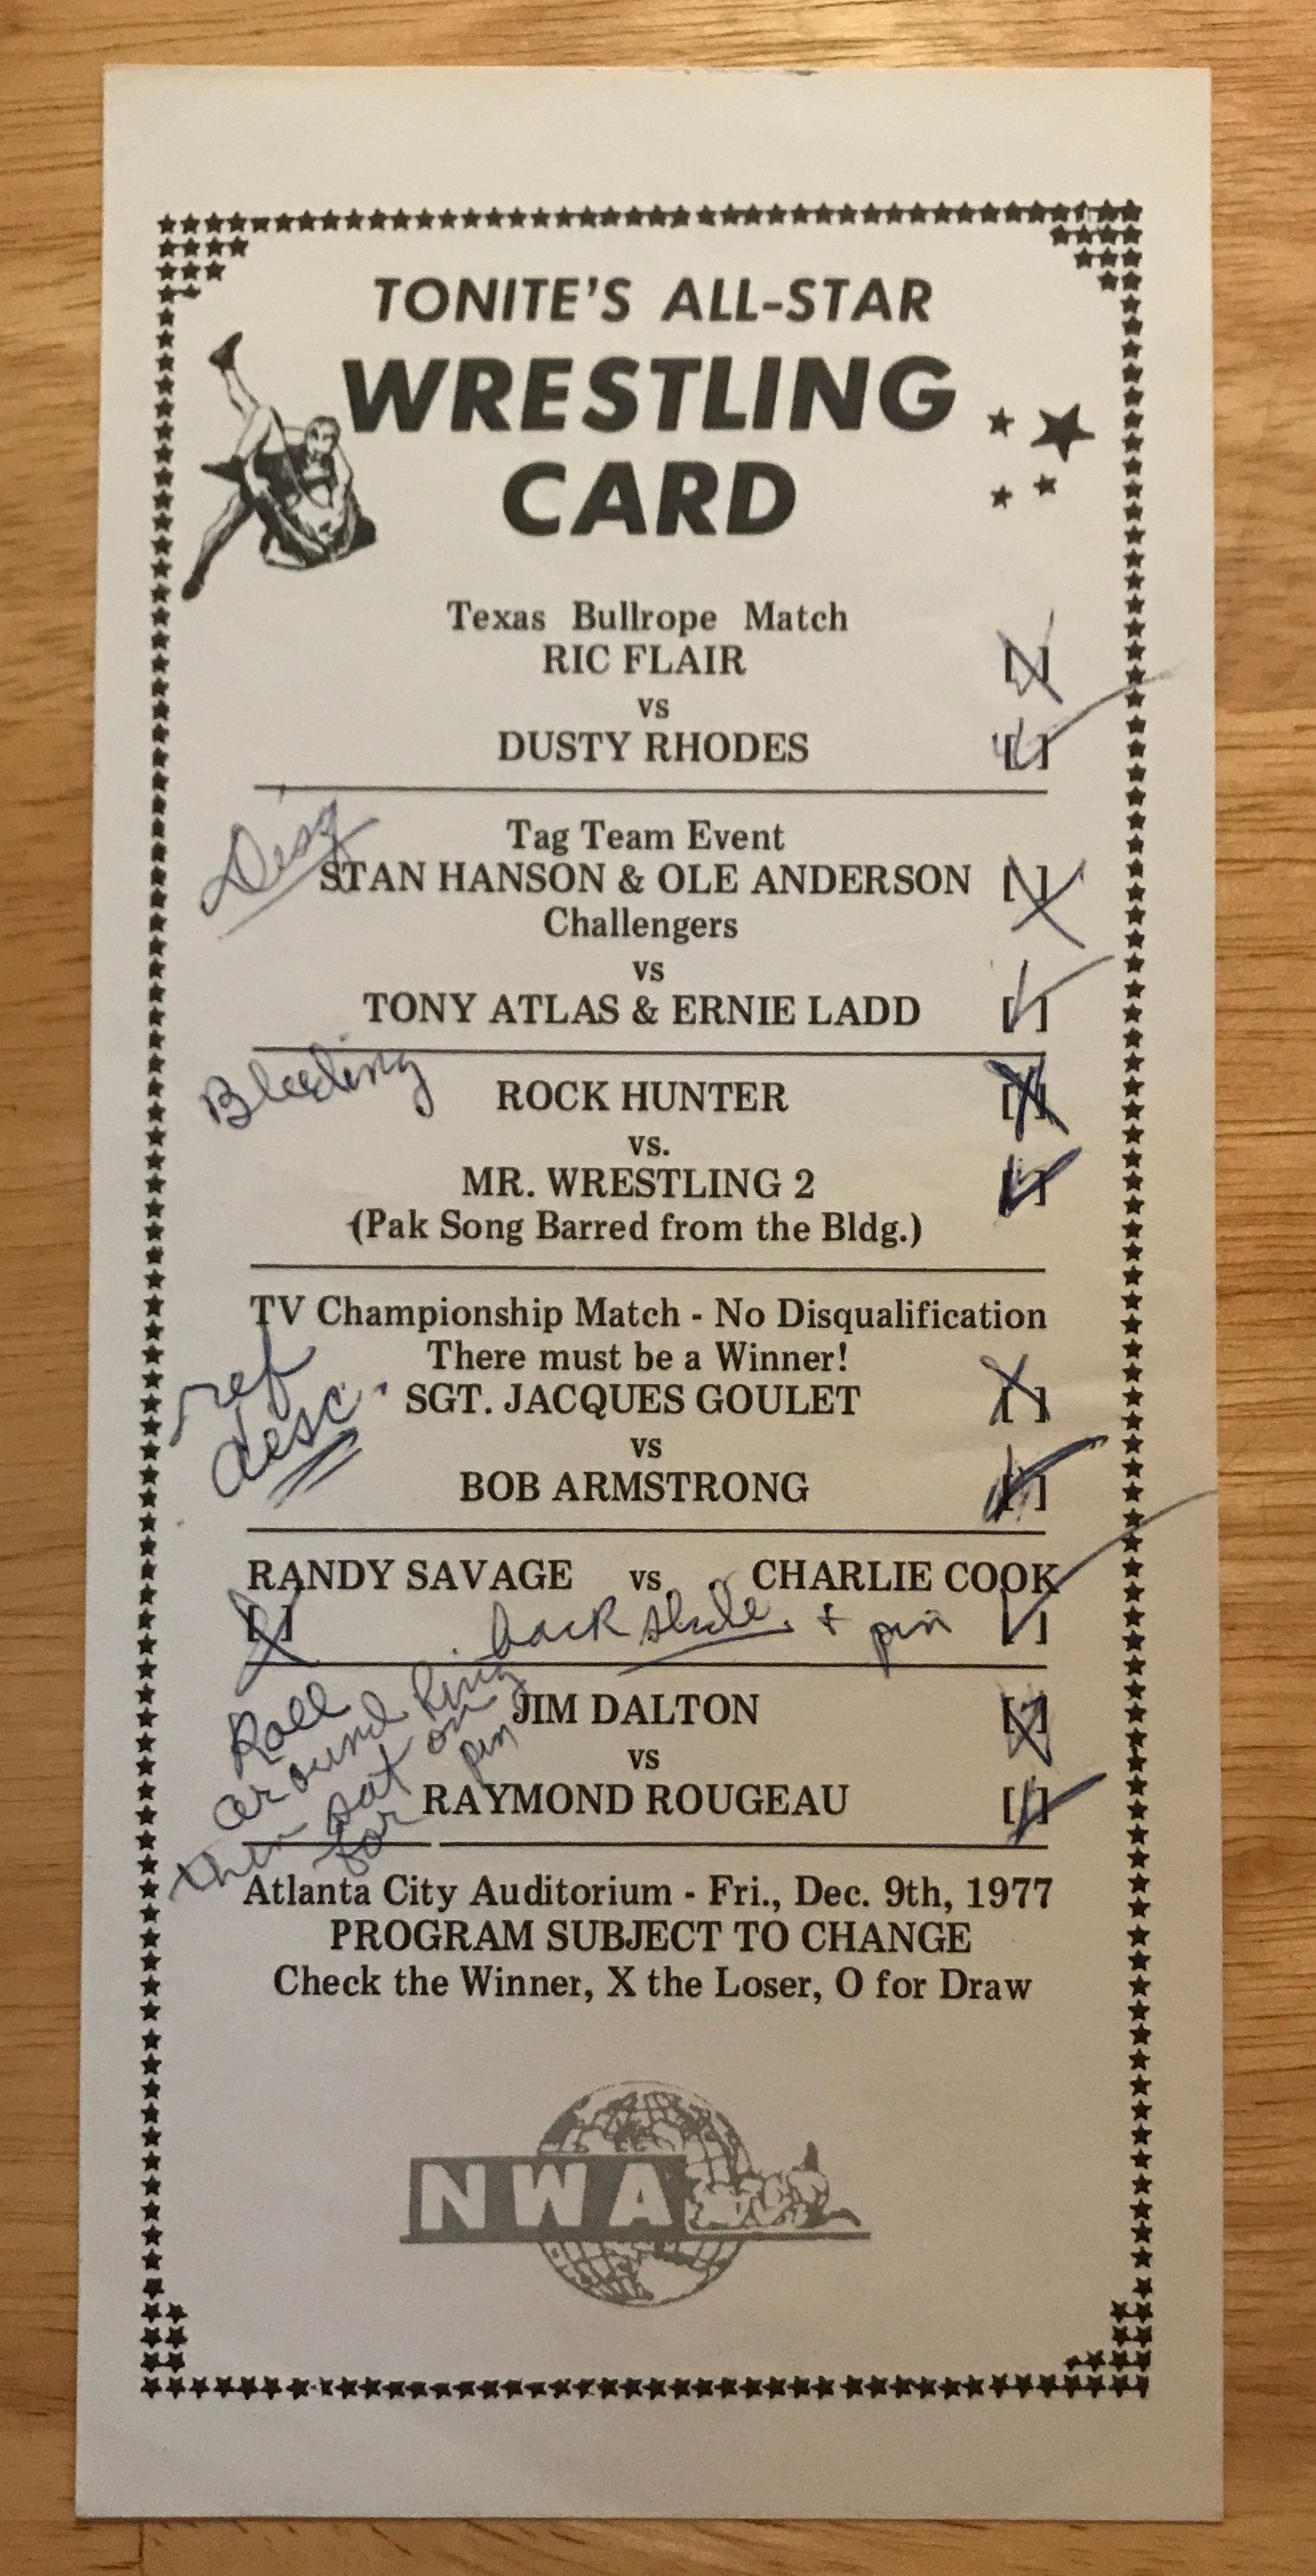 TONITE'S ALL-STAR
WRESTLING
CARD
Texas Bullrope Match
RIC FLAIR [ ]
vs
DUSTY RHODES [ ]
Tag Team Event
Disq
STAN HANSON & OLE ANDERSON [ ]
Challengers
vs
TONY ATLAS & ERNIE LADD [ ]
Bleeding
ROCK HUNTER [ ]
vs.
MR. WRESTLING 2 [ ]
(Pak Song Barred from the Bldg.)
TV Championship Match - No Disqualification
There must be a Winner!
ref
desc.
SGT. JACQUES GOULET [ ]
vs
BOB ARMSTRONG [ ]
RANDY SAVAGE vs. CHARLIE COOK
[ ] back slide + pin [ ]
Roll
around Ring
then sat on
for pin
JIM DALTON [ ]
vs
RAYMOND ROUGEAU [ ]
Atlanta City Auditorium - Fri., Dec. 9th, 1977
PROGRAM SUBJECT TO CHANGE
Check the Winner, X the Loser, O for Draw
NWA